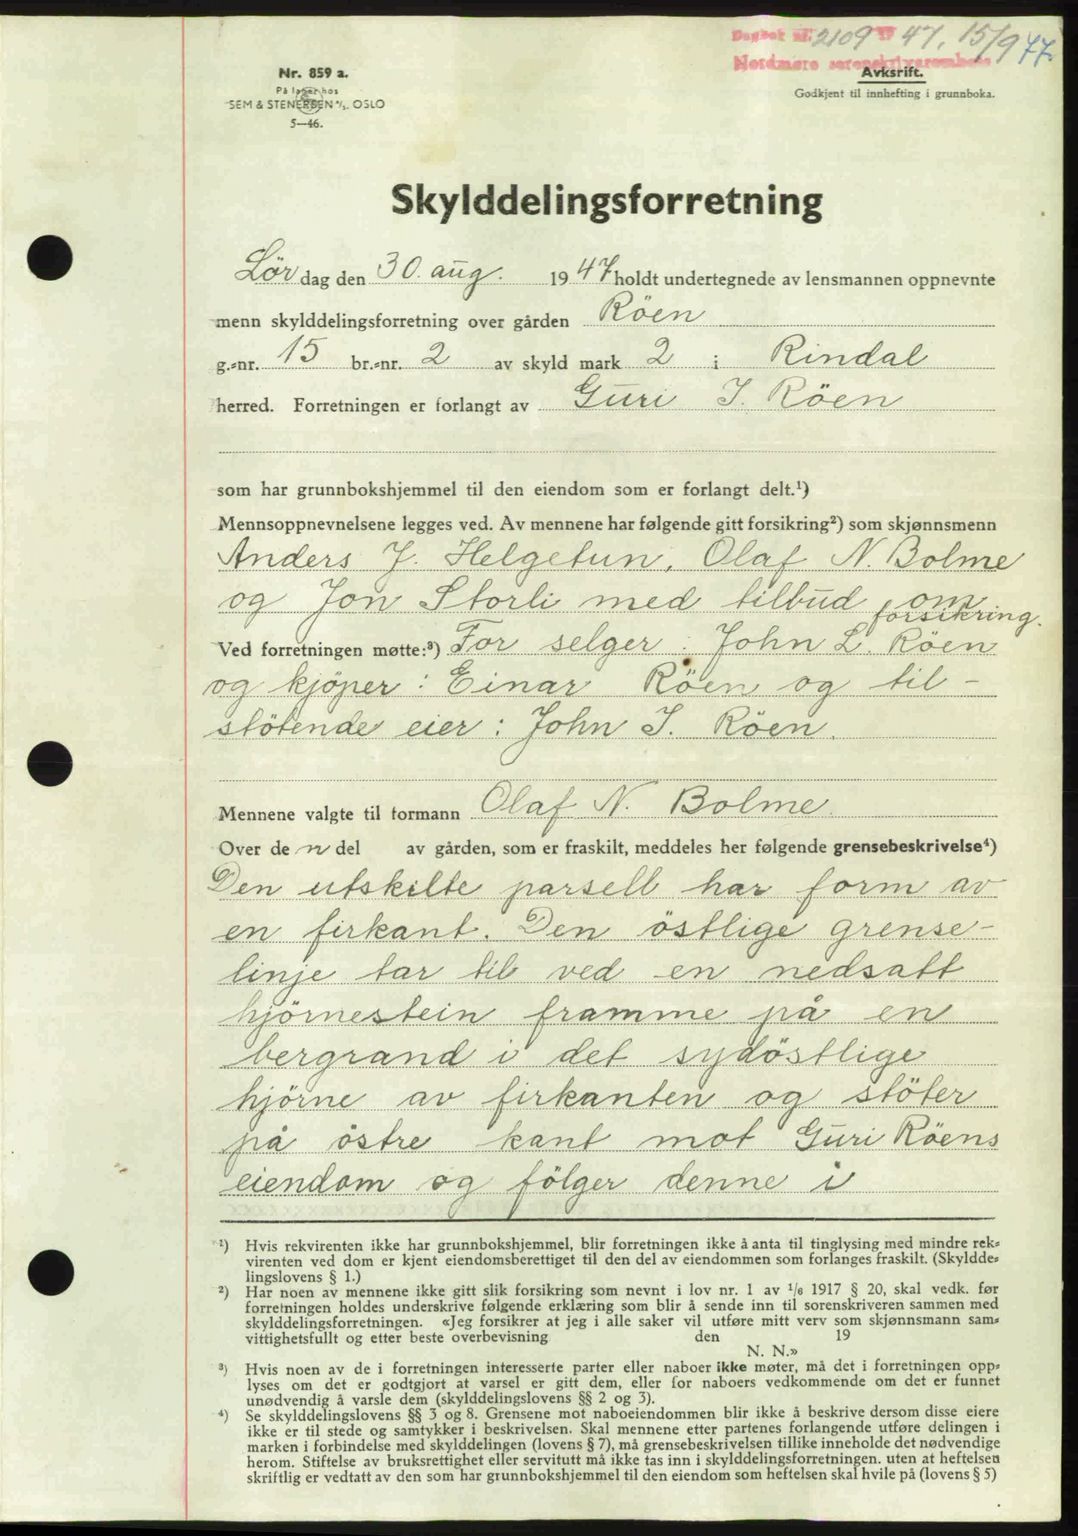 Dagbok nr. 2109 19 47. 15/9 77.
Nordmøre sorenskriverembete
Nr. 859 a.
På lager hos
SEM & STENERSEN A/S. OSLO
5—46.
Avskrift.
Godkjent til innhefting i grunnboka.
Skylddelingsforretning
Lör dag den 30. aug. 19 47 holdt undertegnede av lensmannen oppnevnte
menn skylddelingsforretning over gården Röen
g.-nr. 15 br.-nr. 2 av skyld mark 2 i Rindal
herred. Forretningen er forlangt av Guri J. Röen
som har grunnbokshjemmel til den eiendom som er forlangt delt.¹)
Mennsoppnevnelsene legges ved. Av mennene har følgende gitt forsikring²) som skjønnsmenn
Anders J. Helgetun, Olaf N. Bolme
og Jon Storli med tilbud om
forsikring.
Ved forretningen møtte:³) For selger : John L. Röen
og kjöper : Einar Röen og til-
stötende eier : John J. Röen.
Mennene valgte til formann Olaf N. Bolme.
Over de n del av gården, som er fraskilt, meddeles her følgende grensebeskrivelse⁴)
Den utskilte parsell har form av
en firkant. Den östlige grense-
linje tar til ved en nedsatt
hjörnestein framme på en
bergrand i det sydöstlige
hjörne av firkanten og stöter
på östre kant mot Guri Röens
eiendom og fölger denne i
¹) Hvis rekvirenten ikke har grunnbokshjemmel, blir forretningen ikke å anta til tinglysing med mindre rek-
virenten ved dom er kjent eiendomsberettiget til den del av eiendommen som forlanges fraskilt. (Skyldde-
lingslovens § 1.)
²) Har noen av mennene ikke gitt slik forsikring som nevnt i lov nr. 1 av 1/6 1917 § 20, skal vedk. før
forretningen holdes underskrive følgende erklæring som blir å sende inn til sorenskriveren sammen med
skylddelingsforretningen. «Jeg forsikrer at jeg i alle saker vil utføre mitt verv som skjønnsmann sam-
vittighetsfullt og etter beste overbevisning den 19
N. N.»
³) Hvis noen av de i forretningen interesserte parter eller naboer ikke møter, må det i forretningen opp-
lyses om det er godtgjort at varsel er gitt dem, eller for naboers vedkommende om det er funnet
unødvendig å varsle dem (skylddelingslovens §§ 2 og 3).
⁴) Se skylddelingslovens §§ 3 og 8. Grensene mot naboeiendommen blir ikke å beskrive dersom disse eiere
ikke er til stede og samtykker i beskrivelsen. Skal mennene etter partenes forlangende utføre delingen i
marken i forbindelse med skylddelingen (lovens § 7), må grensebeskrivelsen tillike inneholde det nødvendige
herom. Stiftelse av bruksrettighet eller servitutt må ikke tas inn i skylddelingsforretningen. uten at heftelsen
skriftlig er vedtatt av den som har grunnbokshjemmel til den eiendom som heftelsen skal hvile på (lovens § 5)